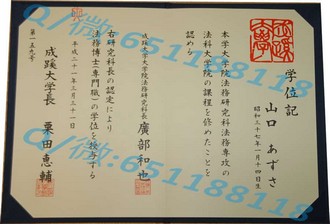 学位記
山口あずさ
昭和五十七年一月十四日生
本学大学院法務研究科法務専攻の
法科大学院の課程を修めたことを
認める
成蹊大学大学院法務研究科長
廣部和也
右研究科長の認定により
法務博士(専門職)の学位を授与する
平成二十一年三月三十一日
成蹊大学長
栗田恵輔
第一五九号
Q/微:651188118
Q/微:651188118